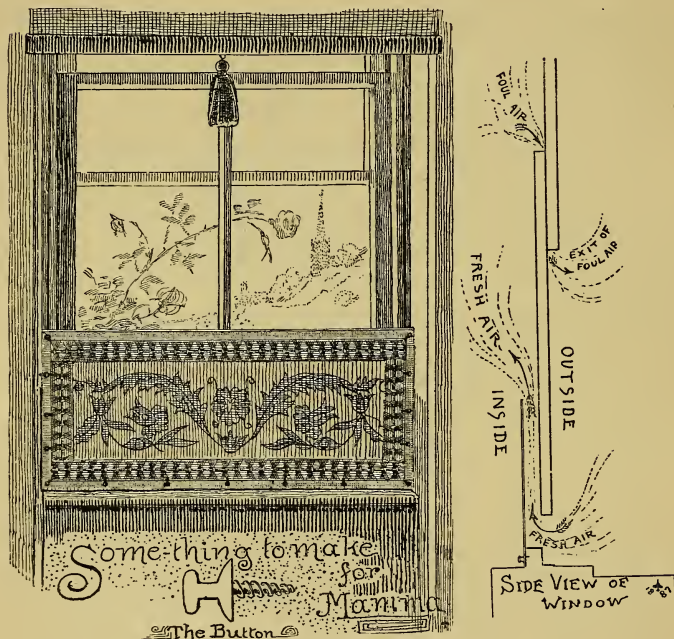 Some-thing to make
for
Mamma
The Button
FOUL
AIR
EXIT OF
FOUL AIR
FRESH AIR
OUTSIDE
INSIDE
FRESH AIR
SIDE VIEW OF
WINDOW